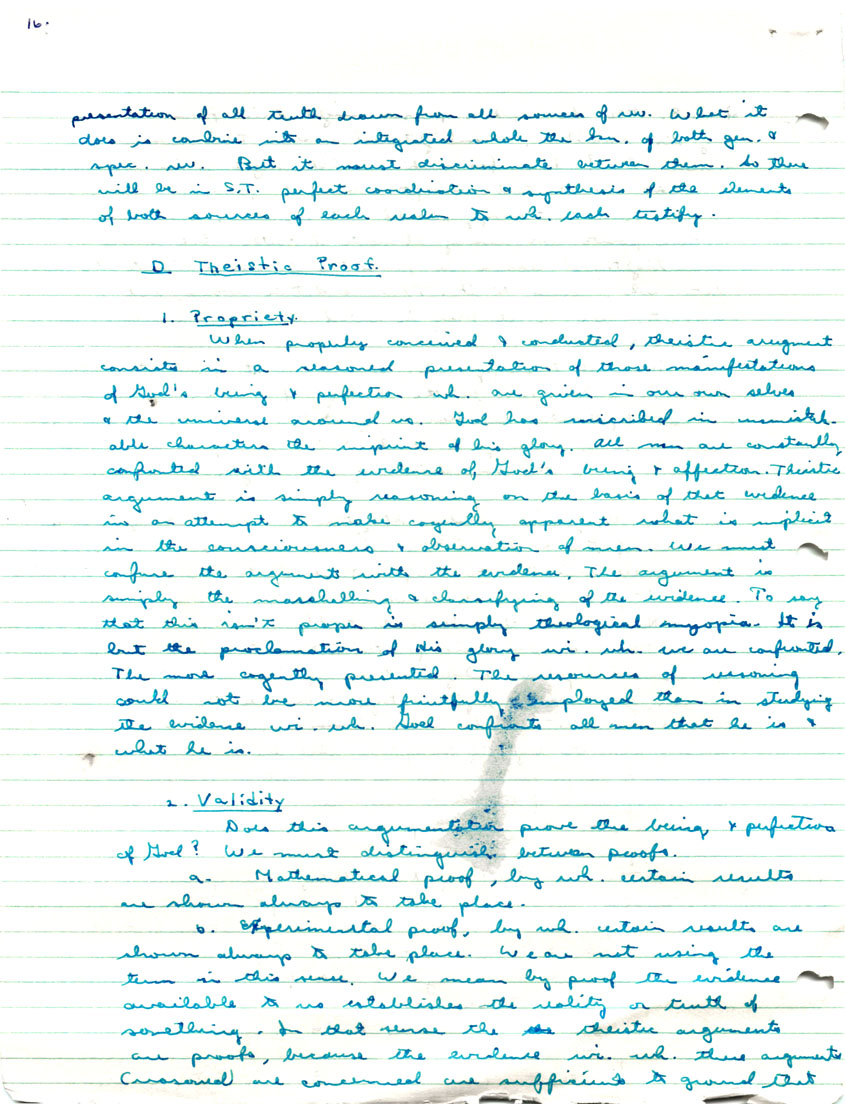 16.
presentation of all truth drawn from all sources of rev. What it
does is combine into an integrated whole the kn. of both gen. &
spec. rev. But it must discriminate between them. So there
will be in S.T. perfect coordination & synthesis of the elements
of both sources of each realm to wh. each testify.
D. Theistic Proof.
1. Propriety.
When properly conceived & conducted, theistic arugment
consists in a reasoned presentation of those manifestations
of God's being & perfection wh. are given in our own selves
& the universe around us. God has inscribed in unmistak-
able characters the imprint of his glory. All men are constantly
confronted with the evidence of God's being & affection. Theistic
argument is simply reasoning on the basis of that evidence
in an attempt to make cogently apparent what is implicit
in the consciousness & observation of men. We must
confuse the arguments with the evidence. The argument is
simply the marshelling & classifying of the evidence. To say
that this isn't proper is simply theological myopia. It is
but the proclamation of His glory wi. wh. we are confronted.
The more cogently presented. The resources of reasoning
could not be more fruitfully employed than in studying
the evidence wi. wh. God confronts all men that he is &
what he is.
2. Validity
Does this argumentation prove the being & perfection
of God? We must distinguish between proofs.
a. Mathematical proof, by wh. certain results
are shown always to take place.
b. Experimental proof, by wh. certain results are
shown always to take place. We are not using the
term in this sense. We mean by proof the evidence
available to us establishes the reality or truth of
something. In that sense the theistic arguments
are proofs, because the evidence wi. wh. these arguments
(reasoned) are concerned are sufficient to ground that